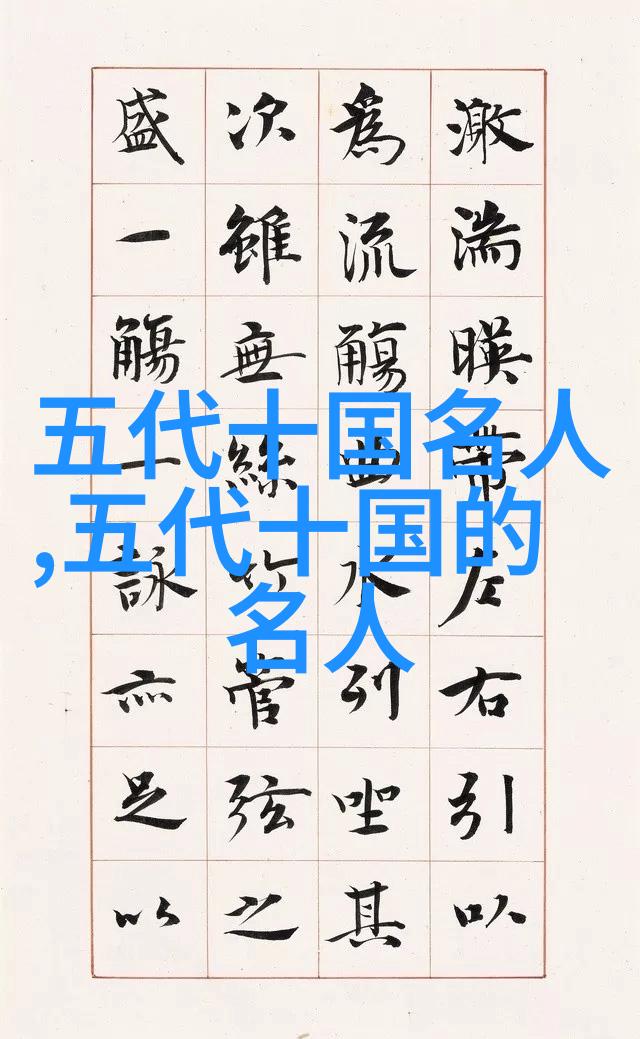 激湍暎帶左右引以
為流觴曲水列坐其
次雖無絲竹管弦之
盛一觴一詠亦足以
五代十国名人
,五代十国的
名人